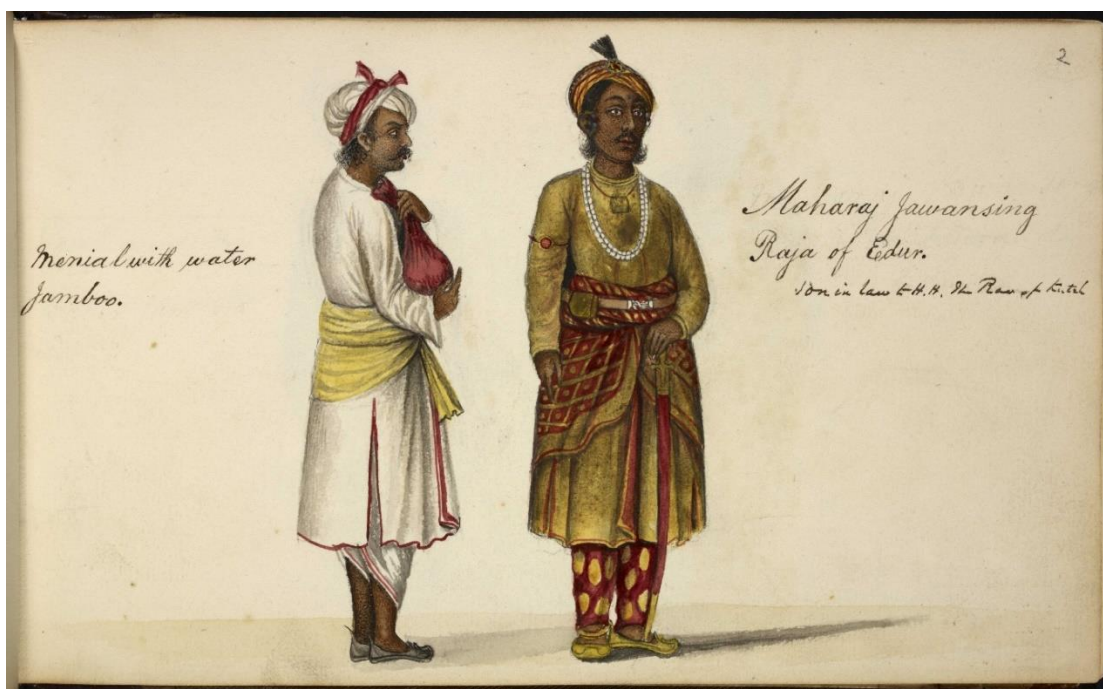 2
Menial with water
Jamboo.
Maharaj Jawansing
Raja of Edur.
Son in law to H.H. The Rao of Kutch